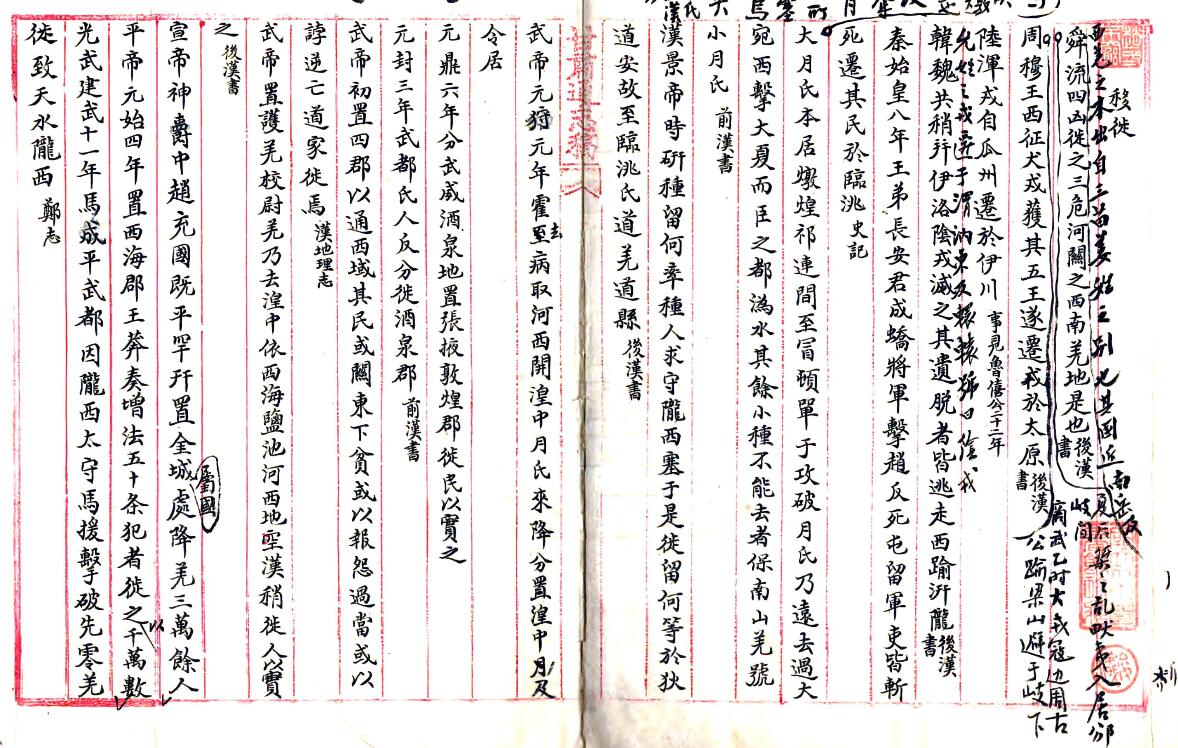 移徙
西羌之本出自三苗姜姓之別也其國近南岳及
舜流四凶徙之三危河關之西南羌地是也後漢書
夏后桀之亂畎夷入居邠岐間
周穆王西征犬戎獲其五王遂遷戎於太原後漢書
武乙時犬戎寇边周古公踰梁山避于岐下
陸渾戎自瓜州遷於伊川事見魯僖公二十二年
允姓之戎遷于渭汭東及轘轅
韓魏共稍并伊洛陰戎滅之其遺脫者皆逃走西踰汧隴後漢書
秦始皇八年王弟長安君成蟜將軍擊趙反死屯留軍吏皆斬
死遷其民於臨洮史記
大月氏本居燉煌祁連間至冒頓單于攻破月氏乃遠去過大
宛西擊大夏而臣之都溈水其餘小種不能去者保南山羌號
小月氏前漢書
漢景帝時研種留何率種人求守隴西塞于是徙留何等於狄
道安故至臨洮氐道羌道縣後漢書
武帝元狩元年霍去病取河西開湟中月氏來降分置湟中月及
令居
元鼎六年分武威酒泉地置張掖敦煌郡徙民以實之
元封三年武都氐人反分徙酒泉郡前漢書
武帝初置四郡以通西域其民或關東下貧或以報怨過當或以
誖逆亡道家徙焉漢地理志
武帝置護羌校尉羌乃去湟中依西海鹽池河西地空漢稍徙人以實
之後漢書
宣帝神爵中趙充國既平罕幵置金城屬國處降羌三萬餘人
平帝元始四年置西海郡王莽奏增法五十条犯者徙之以千萬數
光武建武十一年馬成平武都因隴西太守馬援擊破先零羌
徙致天水隴西鄭志